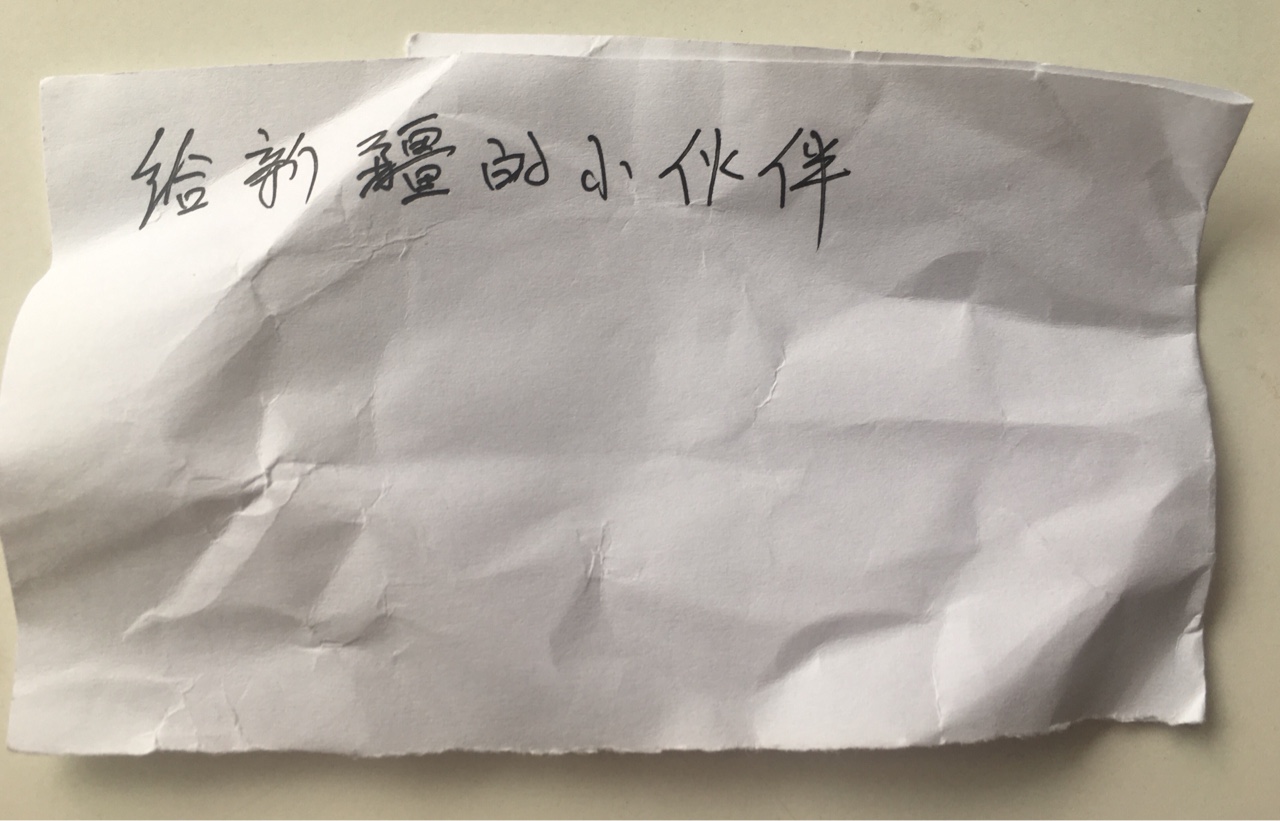 给新疆的小伙伴